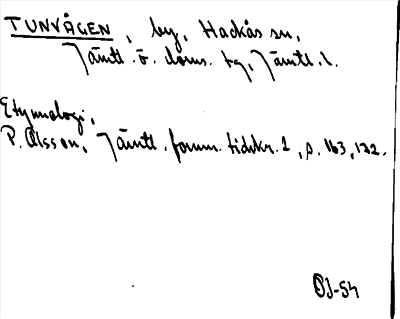 TUNVÅGEN, by, Hackås sn,
Jämtl. ö. doms. tg, Jämtl. l.
Etymologi,
P. Olsson, Jämtl. fornm. tidskr. 1, s. 163, 122.
OJ-54